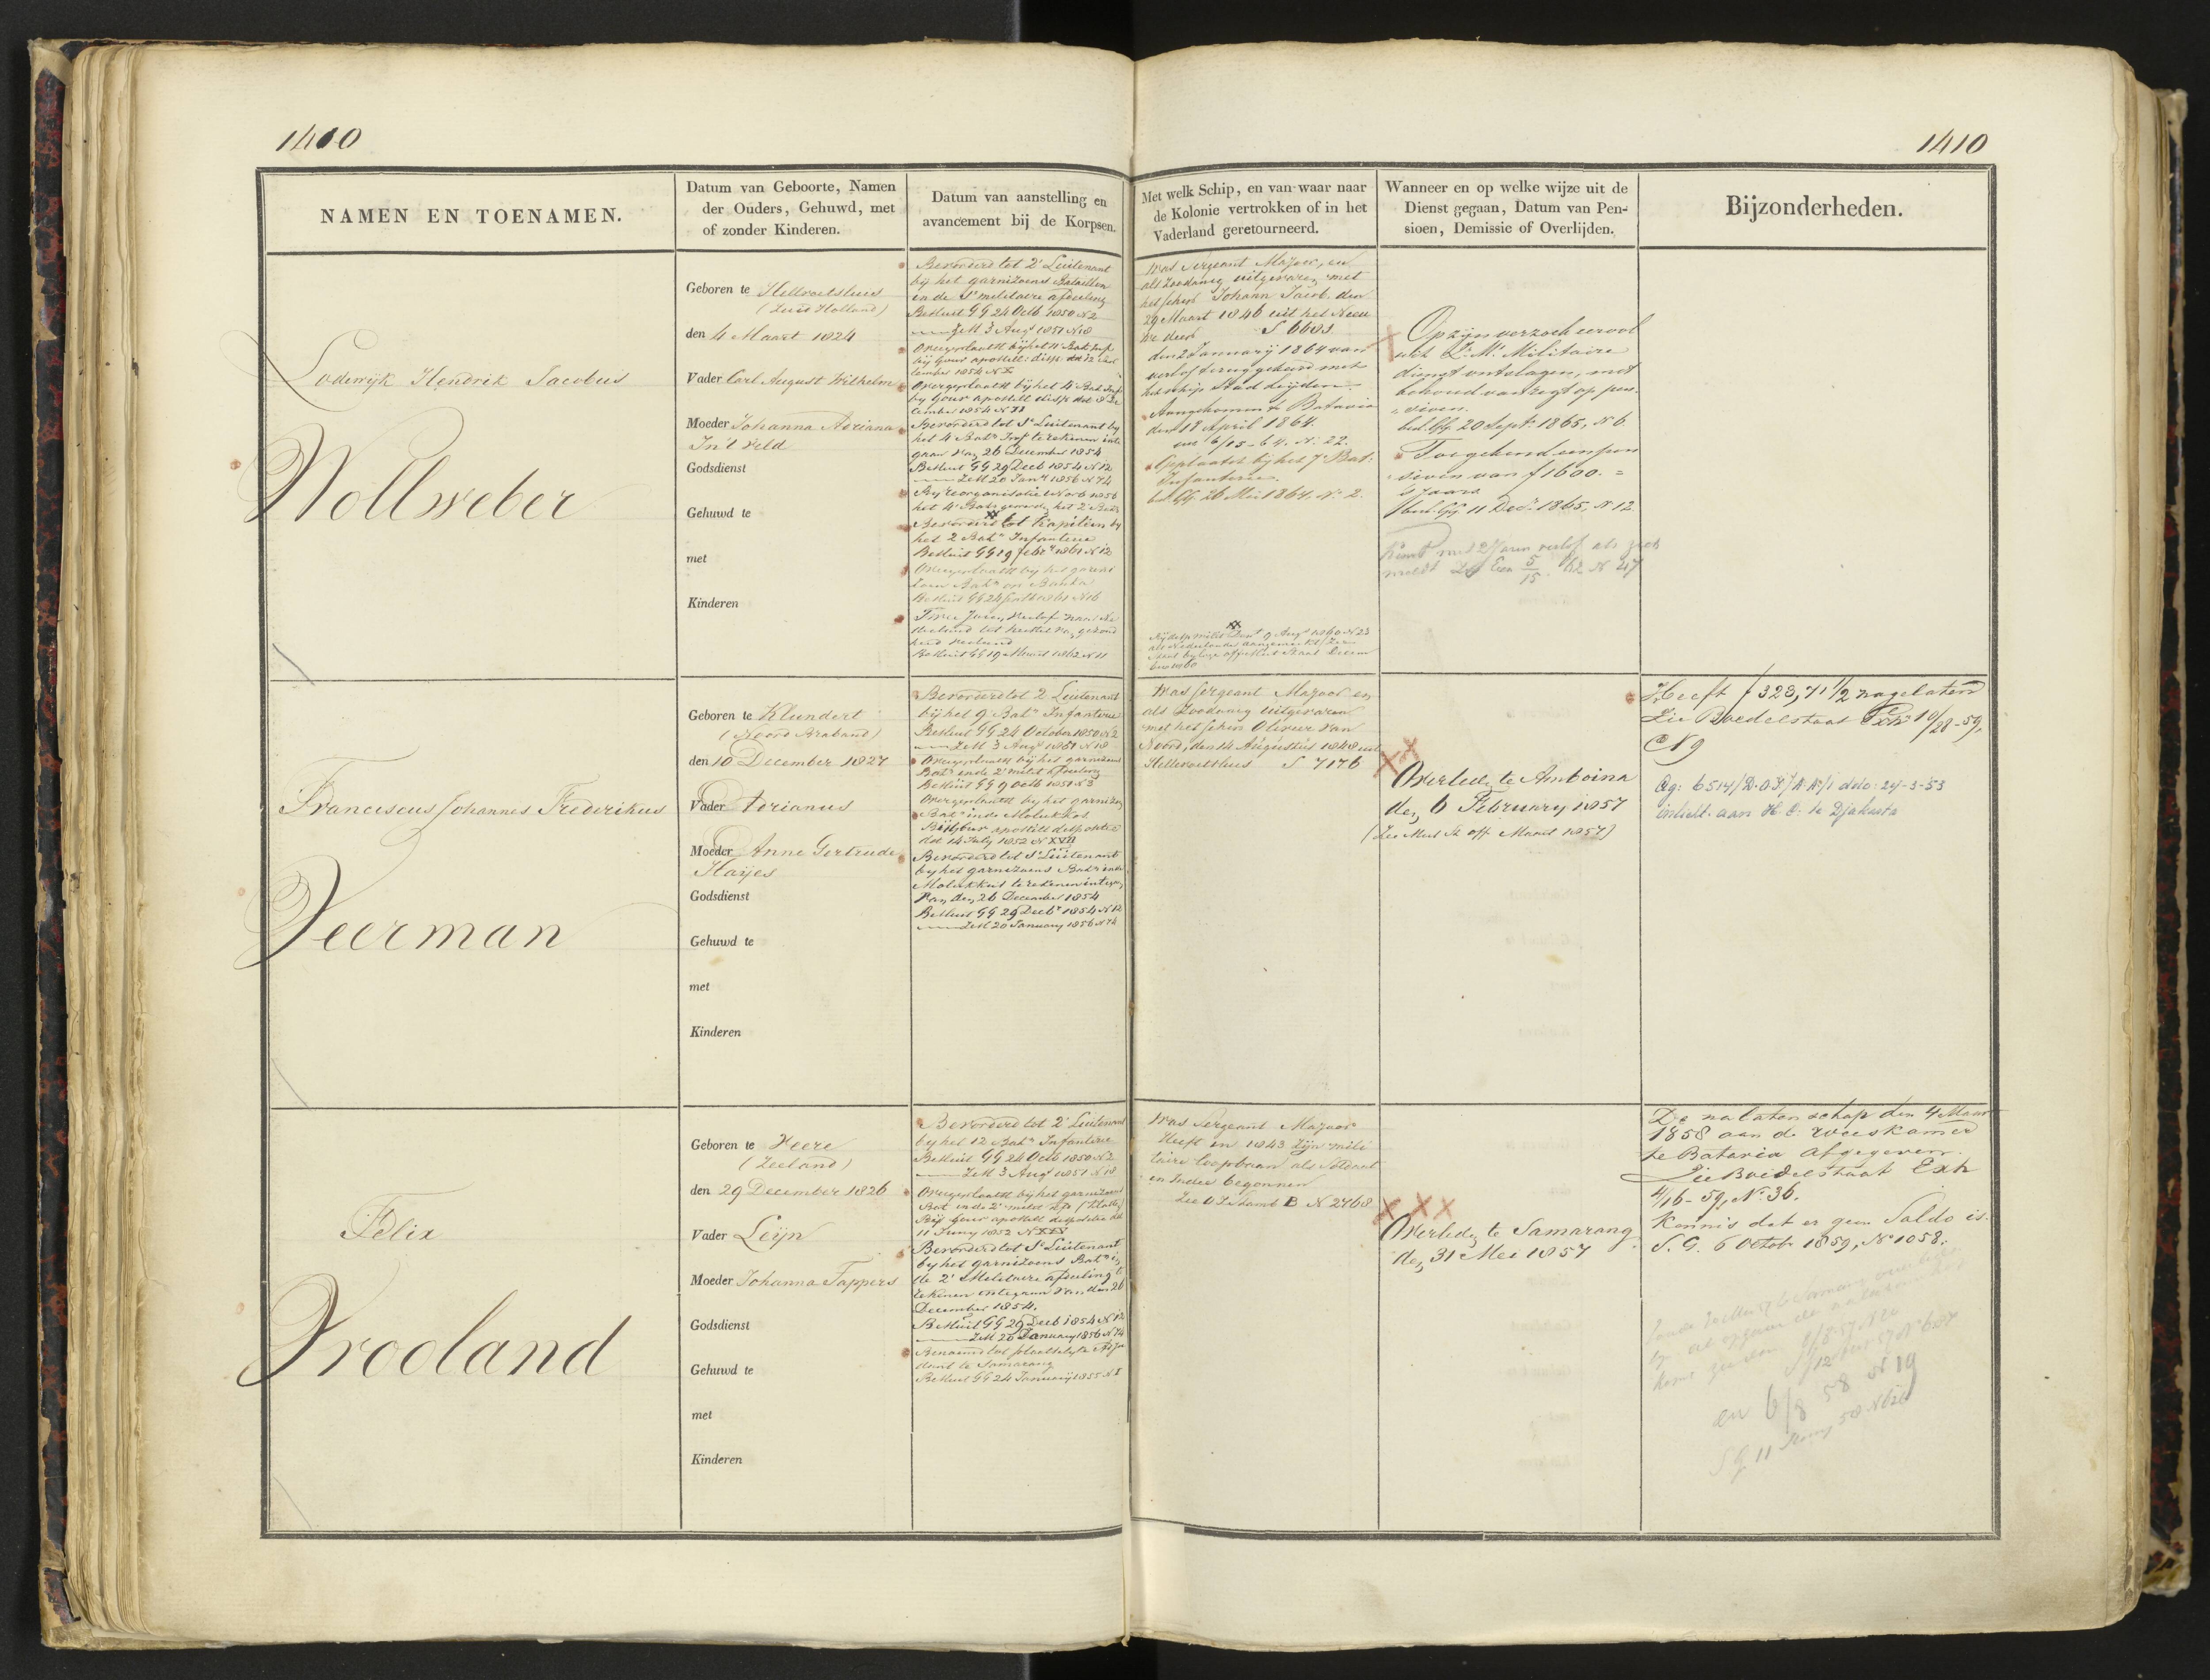 1410
1410
NAMEN EN TOENAMEN.
Datum van Geboorte, Namen
der Ouders, Gehuwd, met
of zonder Kinderen.
Datum van aanstelling en
avancement bij de Korpsen.
Met welk Schip, en van waar naar
de Kolonie vertrokken of in het
Vaderland geretourneerd.
Wanneer en op welke wijze uit de
Dienst gegaan, Datum van Pen-
sioen, Demissie of Overlijden.
Bijzonderheden.
Lodewijk Hendrik Jacobus
Wollweber
Geboren te Hellvoetsluis
(Zuid Holland)
den 4 Maart 1824
Vader Carl August Wilhelm
Moeder Johanna Adriana
In't Veld
Godsdienst
Gehuwd te
met
Kinderen
Bevorderd tot 2e Luitenant
bij het garnizoens Bataillon
in de 1e militaire afdeeling
Besluit GG 24 Octb 1850 N 2
ZeM 3 Augs 1851 N 18
Overgeplaatst bij het 4 Bat Inf
by Gouv apostill disp
cember 1854 N
Bevorderd tot 1e Luitenant by
het 4 Batn Inf te rekenen inte
gaan van 26 December 1854
Besluit GG 29 Decb 1854 N 12
ZeM 20 Jany 1856 N 74
By reorganisatie
het 4 Bat geworden het 2 Bat
Bevorderd tot Kapitein by
het 2 Batn Infanterie
Besluit GG 19 febr 1861 N 12
Overgeplaatst by het garni
zoen Batn op Banka
Twee Jaren verlof naar Ne
derland tot herstel van gezond
heid verleend
Besluit GG 19 Maart 1862 N 11
Was Sergeant Majoor, en
als zoodanig uitgevaren met
het schip Johann Jacob den
29 Maart 1846 uit het Nieu
we diep S 6683
den 2 January 1864 van
verlof teruggekeerd met
het schip Stad Leijden
Aangekomen te Batavia
den 18 April 1864.
Geplaatst bij het 7e Bat:
Infanterie.
bsl. GG 26 Mei 1864. N. 2.
Op zijn verzoek eervol
uit Zr. Ms. Militaire
dienst ontslagen, met
behoud van regt op pen-
sioen.
besl. GG 20 Sept. 1865, N 6
Toegekend een pen
sioen van f 1600. =
's jaars
besl. GG 11 Decr. 1865, N 12
Franciscus Johannes Frederikus
Veerman
Geboren te Klundert
(Noord Braband)
den 10 December 1827
Vader Adrianus
Moeder Anne Gertrude
Hayes
Godsdienst
Gehuwd te
met
Kinderen
Bevorderd tot 2 Luitenant
bij het 9 Batn Infanterie
Besluit GG 24 October 1850 N 2
ZeM 3 Augs 1851 N 18
Overgeplaatst bij het garnizoens
Batn in de 2e milit afdeeling
Besluit GG 9 Octb 1851 N 3
Overgeplaatst by het garnizoens
Batn in de Molukkos
By Gouv apostill dispositie
dd 14 July 1852 N XVII
Bevorderd tot 1e Luitenant
by het garnizoens Batn in de
Molukkos te rekenen integaan
van den 26 December 1854
Besluit GG 29 Decbr 1854 N 12
ZeM 20 January 1856 N 74
Was Sergeant Majoor en
als zoodanig uitgevaren
met het schip Olivier van
Noord, den 14 Augustus 1848 uit
Hellevoetsluis S 7176
Overleden te Amboina
den 6 February 1857
(Zie Mut St off Maart 1857)
Heeft f 323,71 1/2 nagelaten
Zie Boedelstaat Exh 10/28-59,
N 9
Ag: 6514/D.O.Z/A.A/1 ddo. 24-3-53
inlicht. aan H.C. te Djakarta
Felix
Vrooland
Geboren te Veere
(Zeeland)
den 29 December 1826
Vader Leyn
Moeder Johanna Tappers
Godsdienst
Gehuwd te
met
Kinderen
Bevorderd tot 2e Luitenant
by het 12 Batn Infanterie
Besluit GG 24 Octb 1850 N 2
ZeM 3 Augs 1851 N 18
Overgeplaatst by het garnizoens
Bat in de 2e milit afd
By Gouv apostill dispositie dd
11 Juny 1852 N XIX
Bevorderd tot 1e Luitenant
by het garnizoens Batn in
de 2e Militaire afdeeling te
rekenen integaan van den 26
December 1854.
Besluit GG 29 Decb 1854 N 12
ZeM 20 January 1856 N 74
Benoemd tot plaatselyke Adju
dant te Samarang
Besluit GG 24 January 1855 N 1
Was Sergeant Majoor
Heeft in 1843 zijn mili
taire loopbaan als Soldaat
in Indie begonnen
Zie O I Stamb B N 2768
Overleden te Samarang
den 31 Mei 1857
De nalatenschap den 4 Maart
1858 aan de weeskamer
te Batavia afgegeven.
Zie Boedelstaat Exh
4/16-59, N. 36.
Kennis dat er geen Saldo is.
S. G. 6 Octob 1859, N 1058.
en 6/8 58 N 19